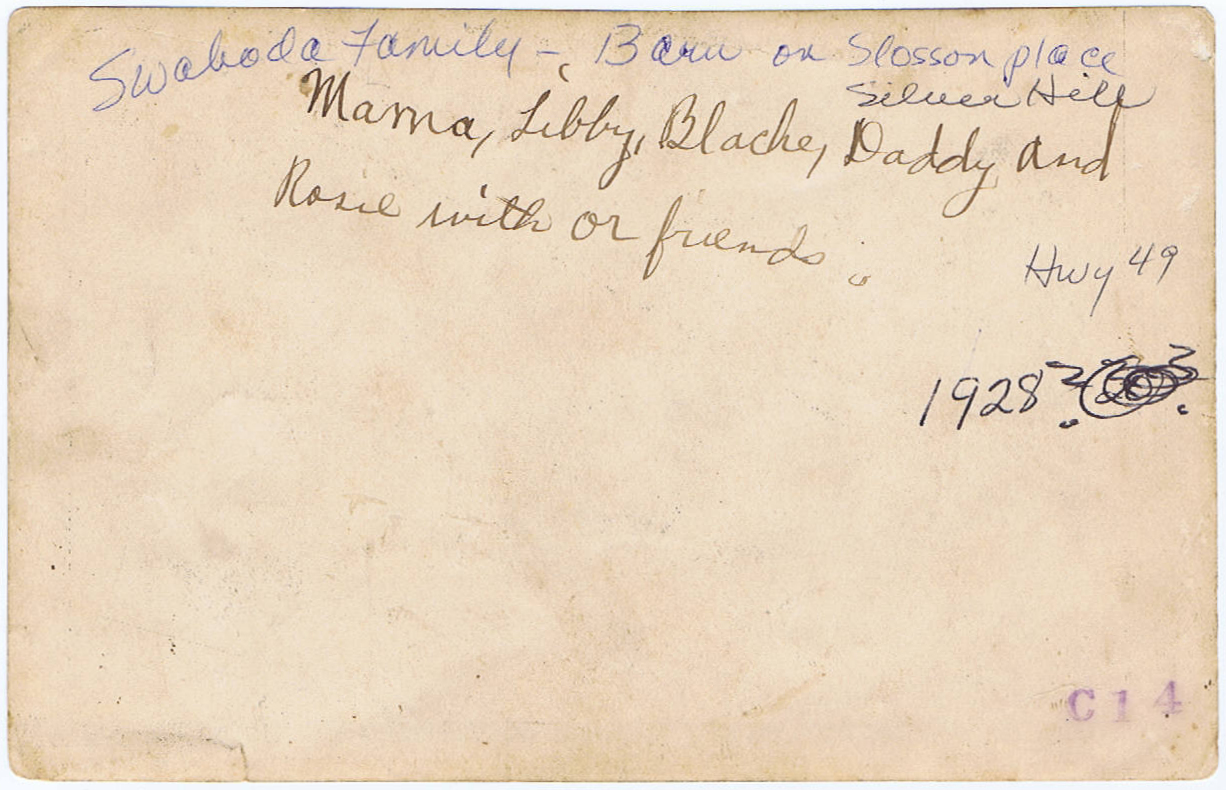 Swaboda Family - Barn on Slosson place
Silver Hill
Mama, Libby, Blache, Daddy and
Rosie with or friends.
Hwy 49
1928?
?
C14